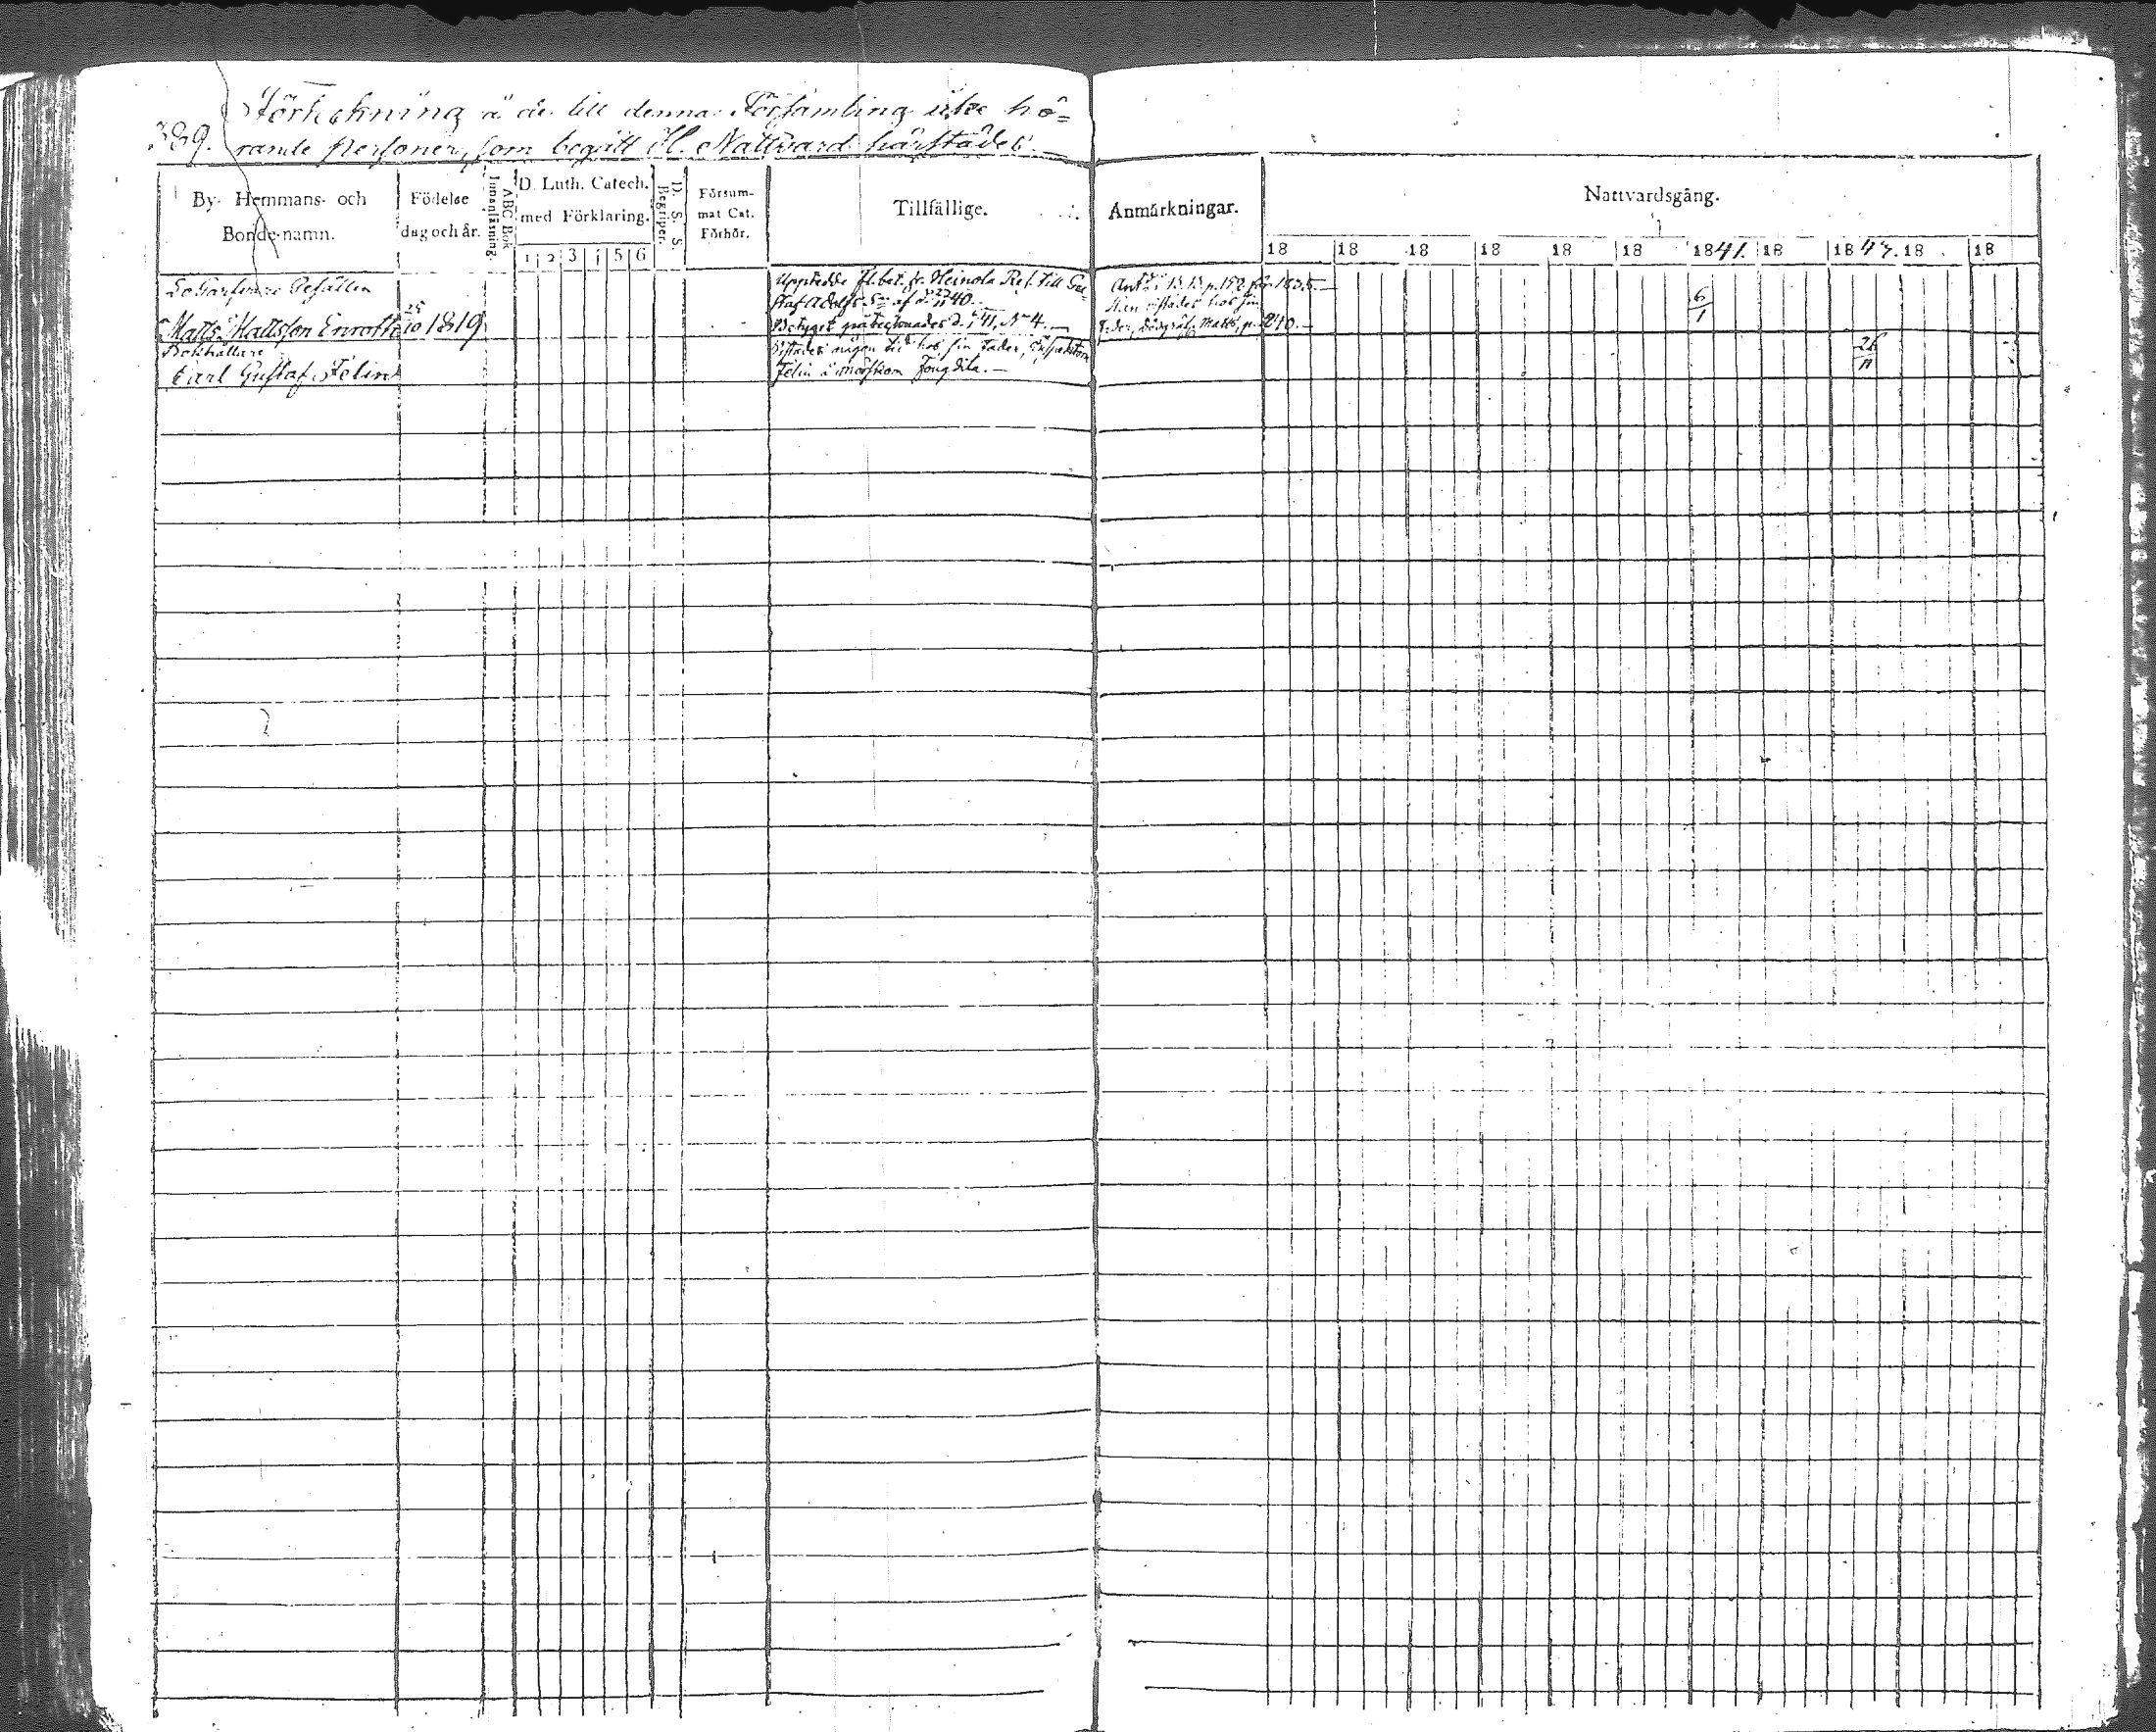 Förteckning å de till denna Församling icke hö=
389. rande personer, som begått H. Nattvard härstädes.
By- Hemmans- och
Bonde-namn.
Födelse
dag och år.
ABC Bok
Innanläsning.
D. Luth. Catech.
med Förklaring.
1 2 3 4 5 6
D. S. S.
Begriper.
Försum-
mat Cat.
Förhör.
Tillfällige.
Anmärkningar.
Nattvardsgång.
18 18 18 18 18 18 1841. 18 1847. 18 18
Gesällen
Matts Mattsson Enroth
25/10 1819
Upptedde fl. bet. fr. Heinola Reg. till Gu=
staf Adolfs S:n af d. 40.
Betyget påtecknades d. 41, N:o 4.
Ant. i p. 152 för 1835.
Han vistades hos sin
Fader, Matts, p. 210.
6/1
Bokhållare
Carl Gustaf Felin
Vistades någon tid hos sin Fader,
Felin å Mörskom